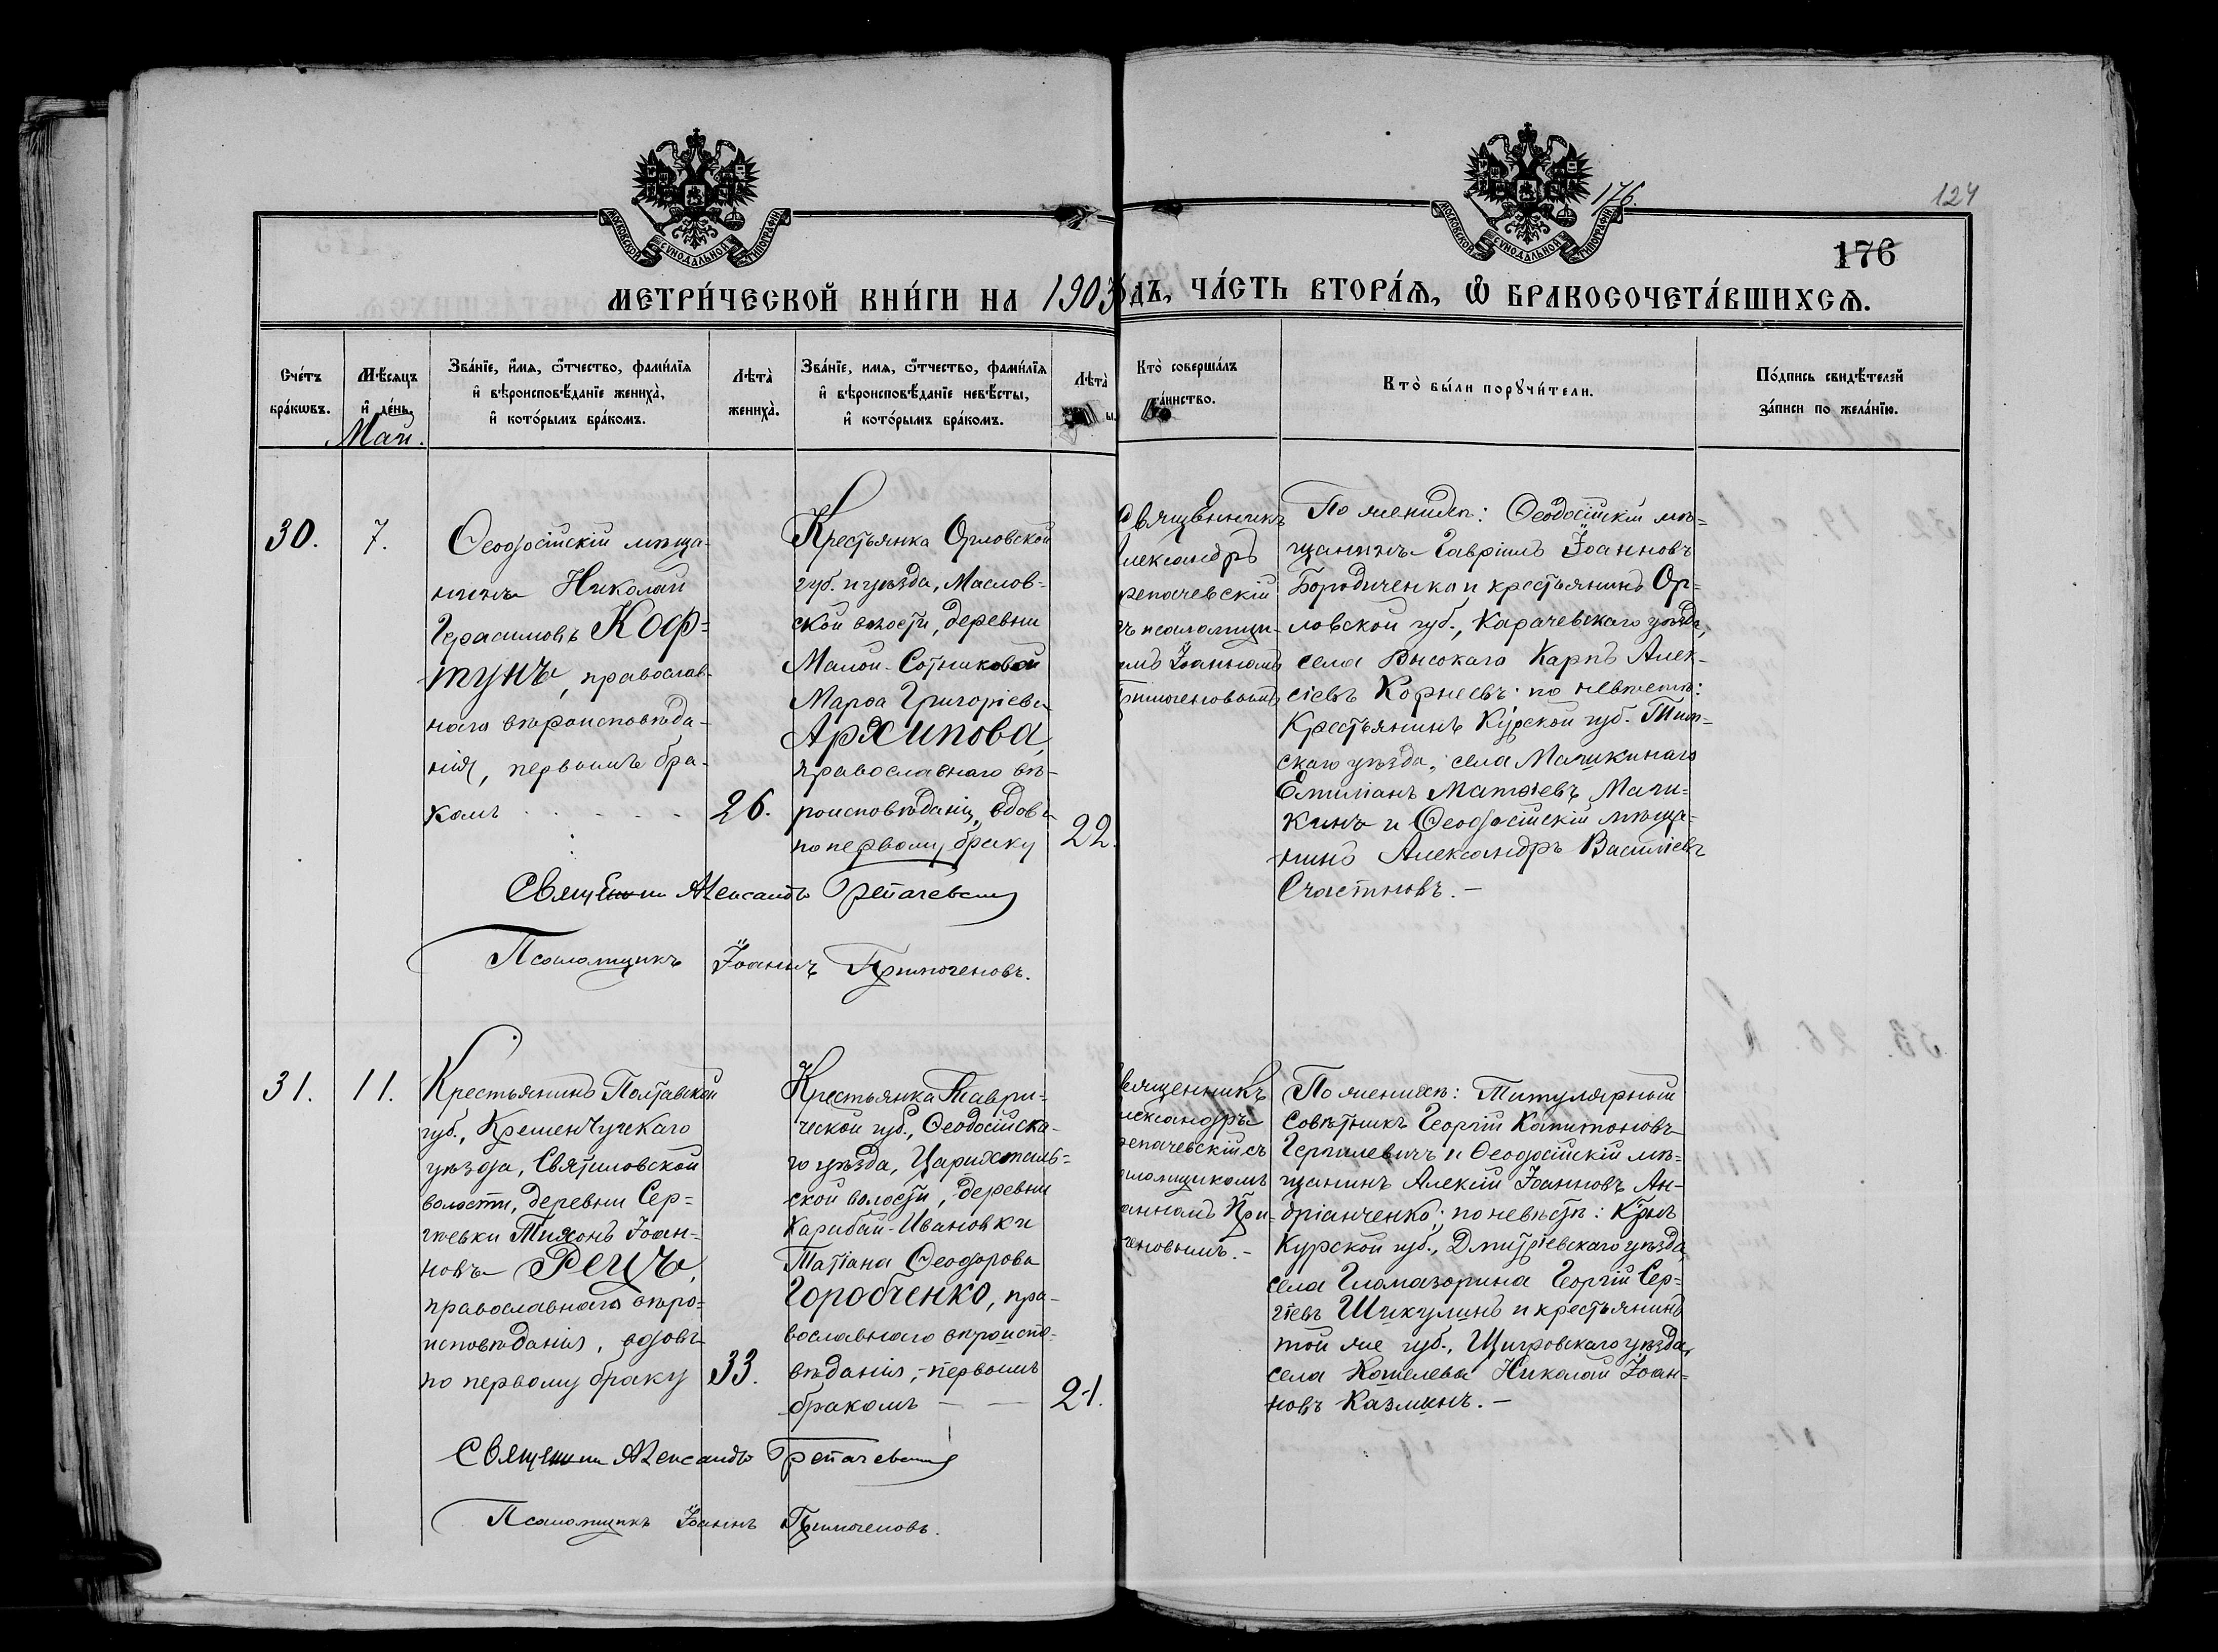 176.
124
176
МОСКОВСКОЙ СѴНОДАЛЬНОЙ ТИПОГРАФІИ
МОСКОВСКОЙ СѴНОДАЛЬНОЙ ТИПОГРАФІИ
МЕТРИ́ЧЕСКОЙ КНИ́ГИ НА 1903
ДЪ, ЧА́СТЬ ВТОРА́Ѧ, Ѽ БРАКОСОЧЕТА́ВШИХСѦ.
Сче́тъ
бра́кѡвъ.
Мѣ́сяцъ
и҆ де́нь.
Май.
Зва́нїе, и҆́мѧ, ѻ҆́тчество, фами́лїѧ
и҆ вѣроисповѣ́данїе жениха̀,
и҆ кото́рымъ бра́комъ.
Лѣта̀
жениха̀.
Зва́нїе, имѧ, ѻ҆́тчество, фами́лїѧ
и҆ вѣроисповѣ́данїе невѣ́сты,
и҆ кото́рымъ бра́комъ.
Лѣта̀
ы.
Кто̀ соверша́лъ
та́инство.
Кто̀ бы́ли порꙋчи́тели.
По́дпись свидѣ́телей
за́писи по жела́нїю.
30.
7.
Ѳеодосійскій мѣща-
нинъ Николай
Герасимовъ Коф-
тунъ, православ-
наго вѣроисповѣда-
нія, первымъ бра-
комъ
26.
Крестьянка Орловской
губ. и уѣзда, Маслов-
ской волости, деревни
Малой-Сотниковой
Марѳа Григоріева
Архипова,
православнаго вѣ-
роисповѣданія, вдова
по первому браку
22.
Священникъ
лександръ
репачевскій
ъ псаломщи-
омъ Іоанномъ
Примоченовымъ
По женихѣ: Ѳеодосійскій мѣ-
щанинъ Гавріилъ Іоанновъ
Бородиченко и крестьянинъ Ор-
ловской губ., Карачевскаго уѣзда,
села Высокаго Карпъ Алек-
сіевъ Корнеевъ; по невѣстѣ:
Крестьянинъ Курской губ. Тим-
скаго уѣзда, села Мачикинаго
Емиліанъ Матѳіевъ Мачи-
кинъ и Ѳеодосійскій мѣща-
нинъ Александръ Василіевъ
Счастновъ.—
Священникъ Александръ Трепачевскій
Псаломщикъ Іоаннъ Примоченовъ.
31.
11.
Крестьянинъ Полтавской
губ., Кременчугскаго
уѣзда, Святиловской
волости, деревни Сер-
гѣевки Тихонъ Іоан-
новъ Рецъ,
православнаго вѣро-
исповѣданія, вдовъ
по первому браку
33.
Крестьянка Таври-
ческой губ., Ѳеодосійска-
го уѣзда, Цюрихталь-
ской волости, деревни
Карабай-Ивановки
Татіана Ѳеодорова
Горобченко, пра-
вославнаго вѣроиспо-
вѣданія, первымъ
бракомъ
21.
вященникъ
лександръ
репачевскій съ
аломщикомъ
анномъ При-
ченовымъ.—
По женихѣ: Титулярный
совѣтникъ Георгій Капитоновъ
и Ѳеодосійскій мѣ-
щанинъ Алексій Іоанновъ Ан-
дріанченко; по невѣстѣ: Кр-нъ
Курской губ., Дмитріевскаго уѣзда,
села Георгій Сер-
гіевъ Шикулинъ и крестьянинъ
той же губ., Щигровскаго уѣзда,
села Кошелева Николай Іоан-
новъ Казминъ.—
Священникъ Александръ Трепачевскій
Псаломщикъ Іоаннъ Примоченовъ.